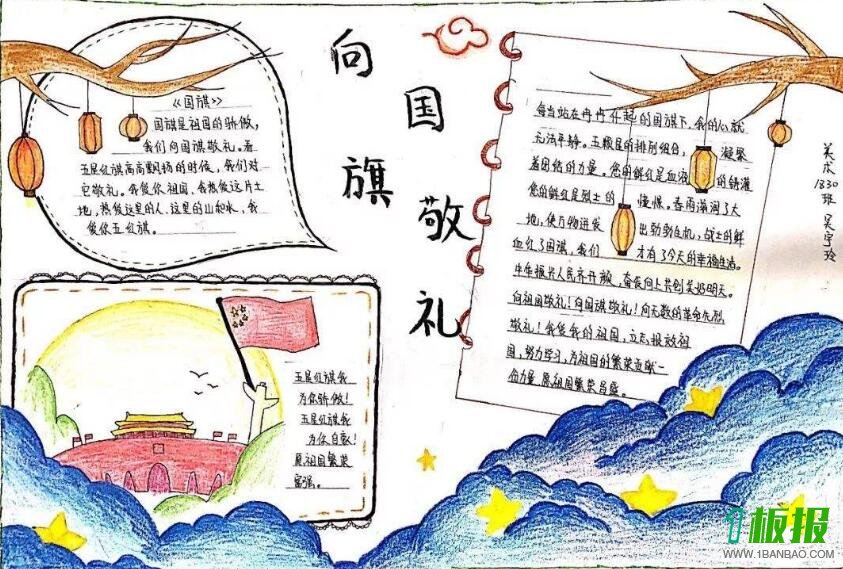 向国旗敬礼
《国旗》
国旗是祖国的骄傲,
我们向国旗敬礼。看
五星红旗高高飘扬的时候,我们对
它敬礼。我爱你祖国,我热爱这片土
地,热爱这里的人,这里的山和水,我
爱你五红旗。
五星红旗我
为你骄傲!
五星红旗我
为你自豪!
愿祖国繁荣
富强。
每当站在冉冉升起的国旗下,我的心就
无法平静。五颗星的排列组合, 凝聚
着团结的力量。您的鲜红是血液 的铸灌
您的鲜红是烈士的 憧憬。春雨滋润了大
地,使万物迸发 出勃勃生机,战士的鲜
血红了国旗,我们 才有了今天的幸福生活。
向祖国敬礼!向国旗敬礼!向无数的革命先烈
敬礼!我爱我的祖国,立志报效祖
国,努力学习,为祖国的繁荣贡献一
份力量,愿祖国繁荣昌盛。
美术1830班 吴宇玲
板报
WWW.1BANBAO.COM